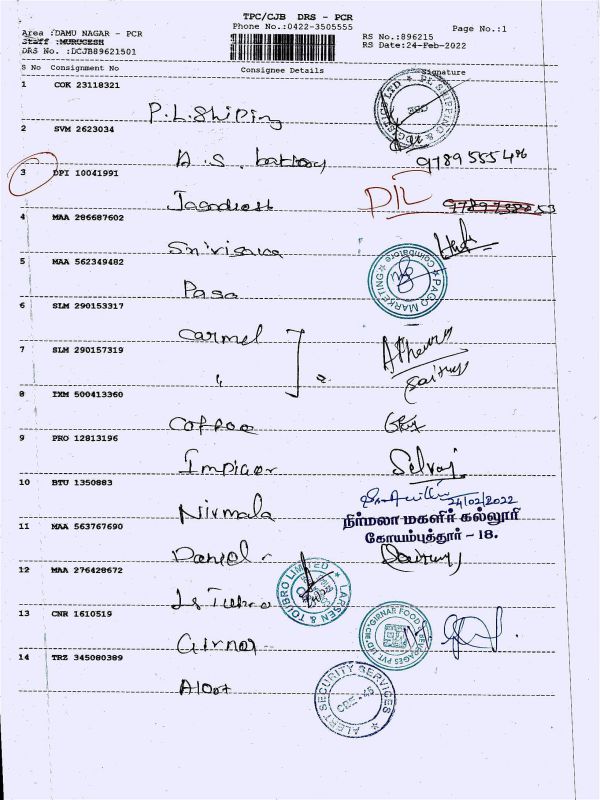 TPC/CJB DRS - PCR
Area :DAMU NAGAR - PCR
Phone No.:0422-3505555
Page No.:1
Staff :MURUGESH
RS No.:896215
DRS No. :DCJB89621501
RS Date:24-Feb-2022
S No Consignment No Consignee Details Signature
1 COK 23118321
P.L.Shiping
2 SVM 2623034
A.S. battery 97895554
3 DPI 10041991
DIL
4 MAA 286687602
5 MAA 562349482
PAGO MARKETING Coimbatore
6 SLM 290153317
Carmel
7 SLM 290157319
"
8 IXM 500413360
9 PRO 12813196
Selvaj
10 BTU 1350883
Nirmala
24/02/2022
நிர்மலா மகளிர் கல்லூரி
கோயம்புத்தூர் - 18.
11 MAA 563767690
Daniel
12 MAA 276428672
LARSEN & TOUBRO LIMITED
13 CNR 1610519
Girnar
GIRNAR FOOD & BEVERAGES PVT LTD
14 TRZ 345080389
Alert
ALERT SECURITY SERVICES
CBE - 45